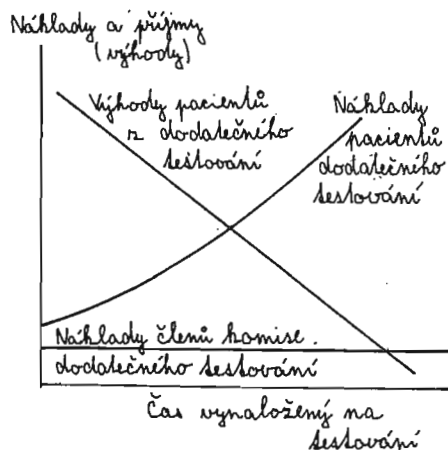 Náklady a příjmy
(výhody)
Výhody pacientů
z dodatečného
testování
Náklady
pacientů
dodatečného
testování
Náklady členů komise
dodatečného testování
Čas vynaložený na
testování